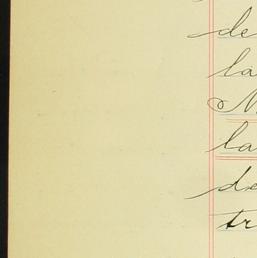 de
la
N
la
de
tr